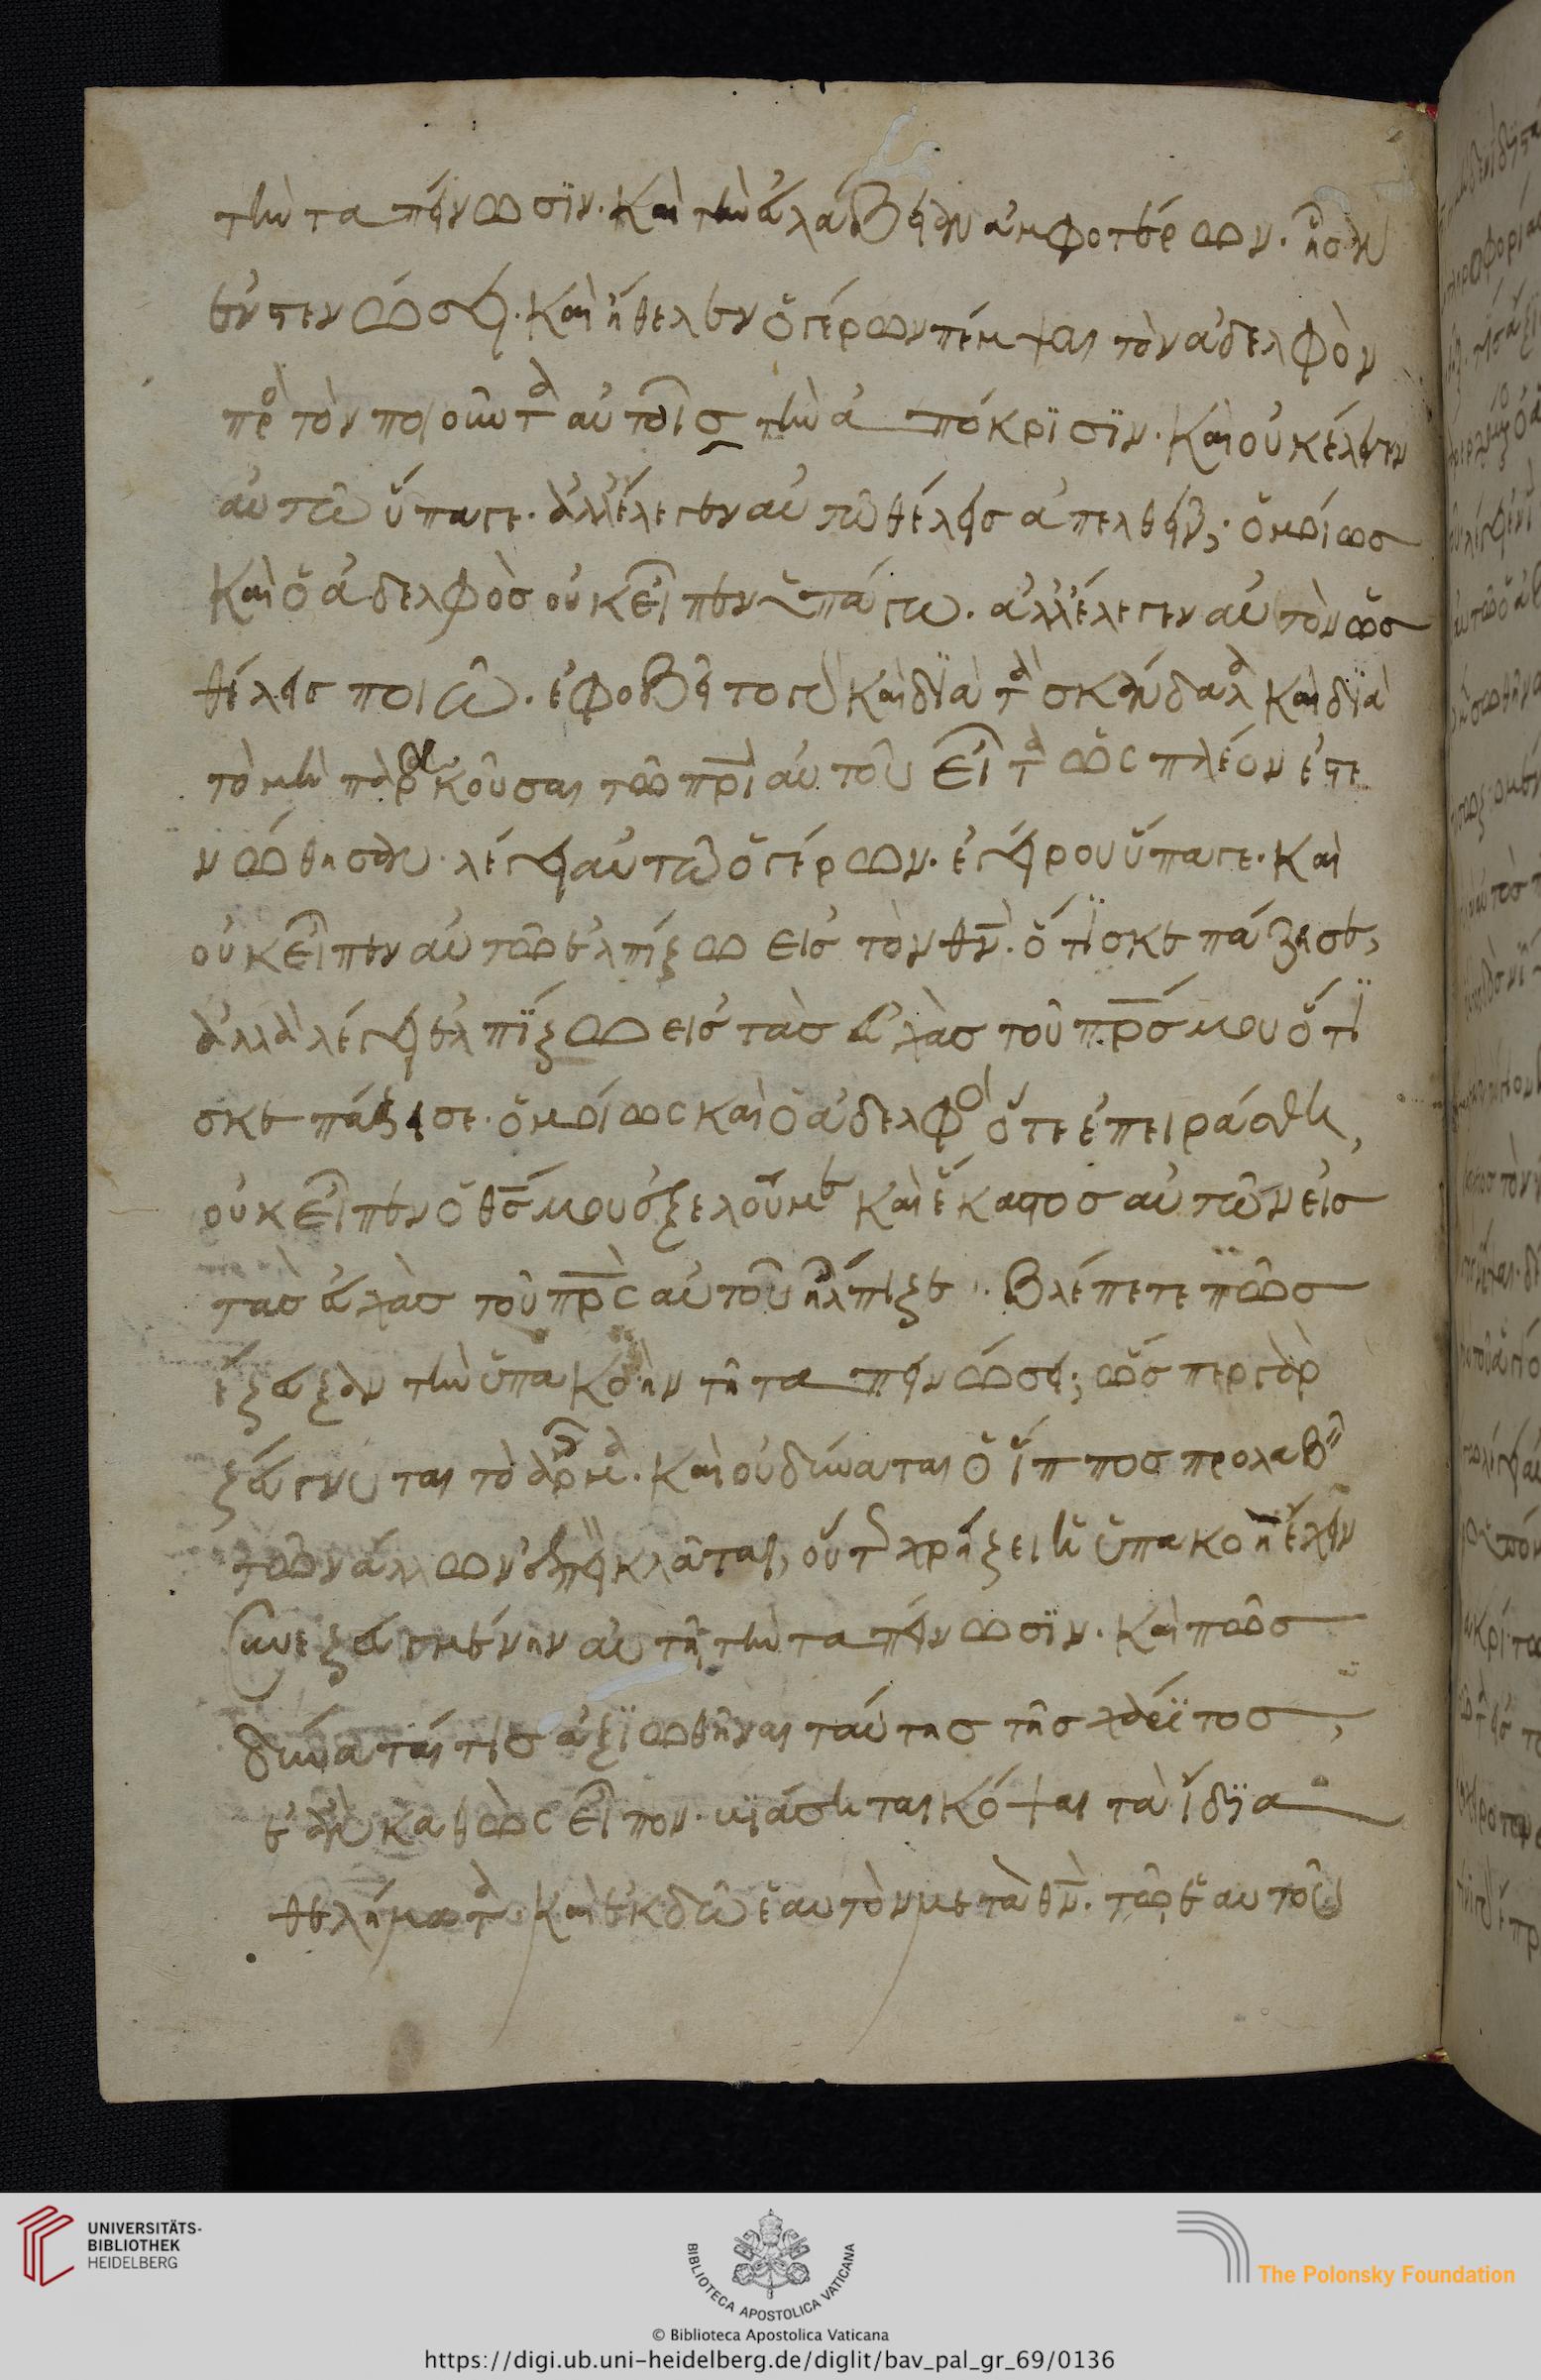 τὴν ταπείνωσϊν· καὶ τὴν εὐλάβειαν ἀμφοτέρων. ἦσαν
ἐν γενώσει. καὶ ἤθελεν ὁ γέρων πέμψαι τὸν ἀδελφὸν
πρὸ τὸν ποιοῦντα αὐτοῖς τὴν ἀπόκρϊσϊν. καὶ οὐκ ἔλεγεν
αὐτῶ ὕπαγε. ἀλλ' ἔλεγεν αὐτῶ θέλεις ἀπελθεῖν; ὁμοίως
καὶ ὁ ἀδελφὸσ οὐκ εἶπεν ὑπάγω. ἀλλ' ἔλεγεν αὐτὸν ὡσ
θέλεισ ποιῶ. ἐφοβεῖτο γὰρ καὶ δϊὰ τὰ σκάνδαλα καὶ δϊὰ
τὸ μὴ παρακοῦσαι τῶ πρῒ αὐτοῦ εἶτα ὡς πλέον ἐγε
νώθησαν. λέγει αὐτῶ ὁ γέρων. ἐγείρου ὕπαγε. καὶ
οὐκ εἶπεν αὐτῶ ἐλπίζω εἰσ τὸν θν̅. ὅτι σκεπάζει σε,
ἀλλὰ λέγει ἐλπΐζω εἰσ τὰσ εὐχὰσ τοῦ πρ̅σ μου ὅτι
σκεπάζει σε. ὁμοίως καὶ ὁ ἀδελφὸ ὅτε ἐπειράσθη,
οὐκ εἶπεν ὁ θσ̅ μου ἐξελοῦ με καὶ ἕκαστοσ αὐτῶν εἰσ
τὰσ εὐχὰσ τοῦ πρ̅ς αὐτοῦ ἤλπιζε. βλέπετε πῶσ
ἔζευξαν τὴν ὑπακοὴν τῆ ταπεινώσει; ὥσπερ γὰρ
ζεύγνυται τὸ ἅρμα. καὶ οὐ δύναται ὁ ἵπποσ προλαβ
τῶν ἄλλων ἐπεὶ κλᾶται, οὕτω χρήζει ἡ ὑπακοὴ ἔχειν
συνεζευγμένην αὐτῆ τὴν ταπείνωσϊν. καὶ πῶσ
δύναταί τισ ἀξϊωθῆναι ταύτησ τῆσ χάρϊτοσ,
ἐὰν καθὼς εἶπον. μϊάσηται κόψαι τὰ ἴδϊα
θελήματα. καὶ ἐκδῶ ἑαυτὸν μετὰ θν̅. τῶ ἑαυτοῦ
UNIVERSITÄTS-
BIBLIOTHEK
HEIDELBERG
BIBLIOTECA APOSTOLICA VATICANA
The Polonsky Foundation
© Biblioteca Apostolica Vaticana
https://digi.ub.uni-heidelberg.de/diglit/bav_pal_gr_69/0136